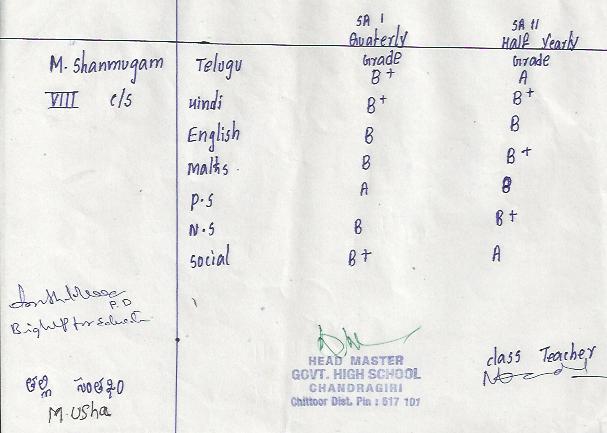 SA I SA II
Quaterly Half Yearly
M. Shanmugam Telugu Grade Grade
B+ A
VIII c/s Hindi B+ B+
English B B
Maths B B+
P.S A B
N.S B B+
Social B+ A
P.D
HEAD MASTER
GOVT. HIGH SCHOOL
CHANDRAGIRI
Chittoor Dist. Pin : 517 101
class Teacher
తల్లి సంతకం
M. Usha